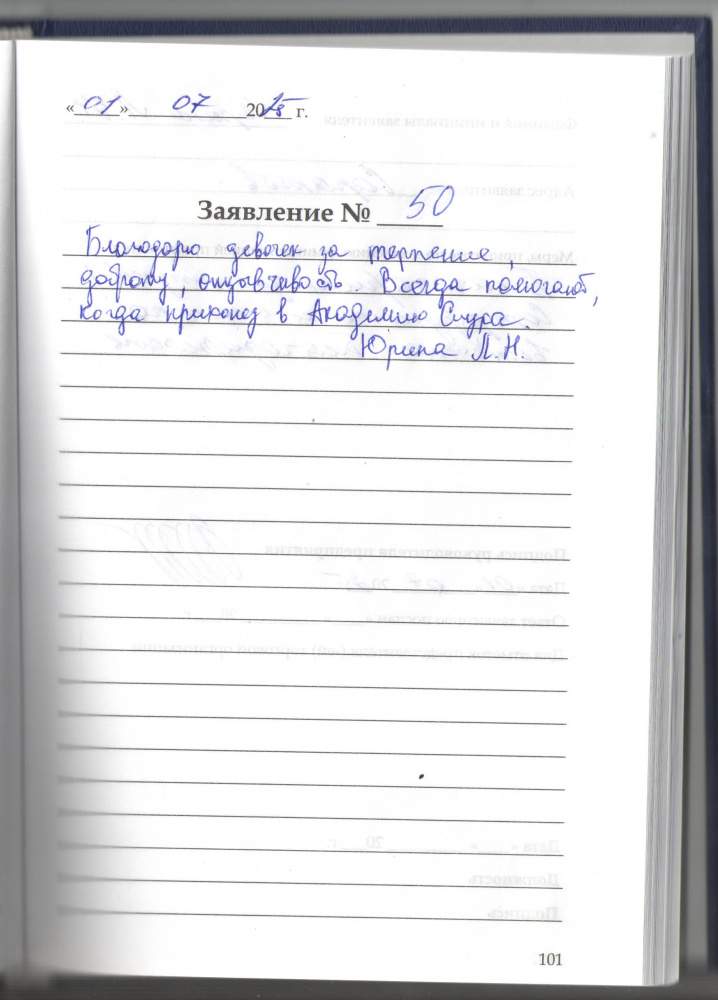 «01» 07 2015 г.
Заявление № 50
Благодарю девочек за терпение,
доброту, отзывчивость. Всегда помогают,
когда прихожу в Академию Слуха.
Юрина Л.Н.
101